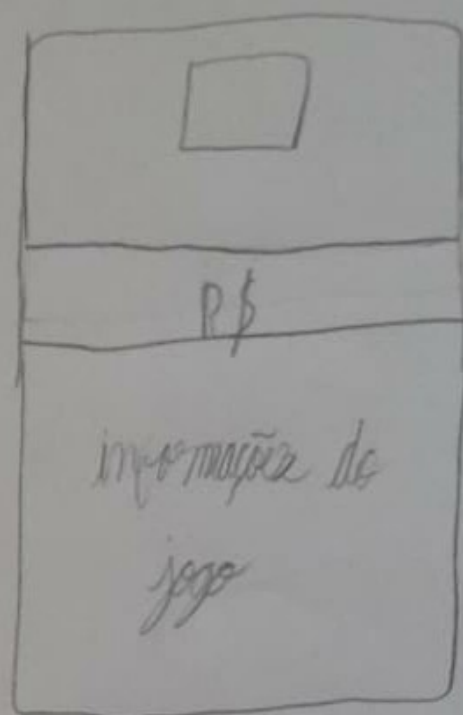 R$
informações do
jogo